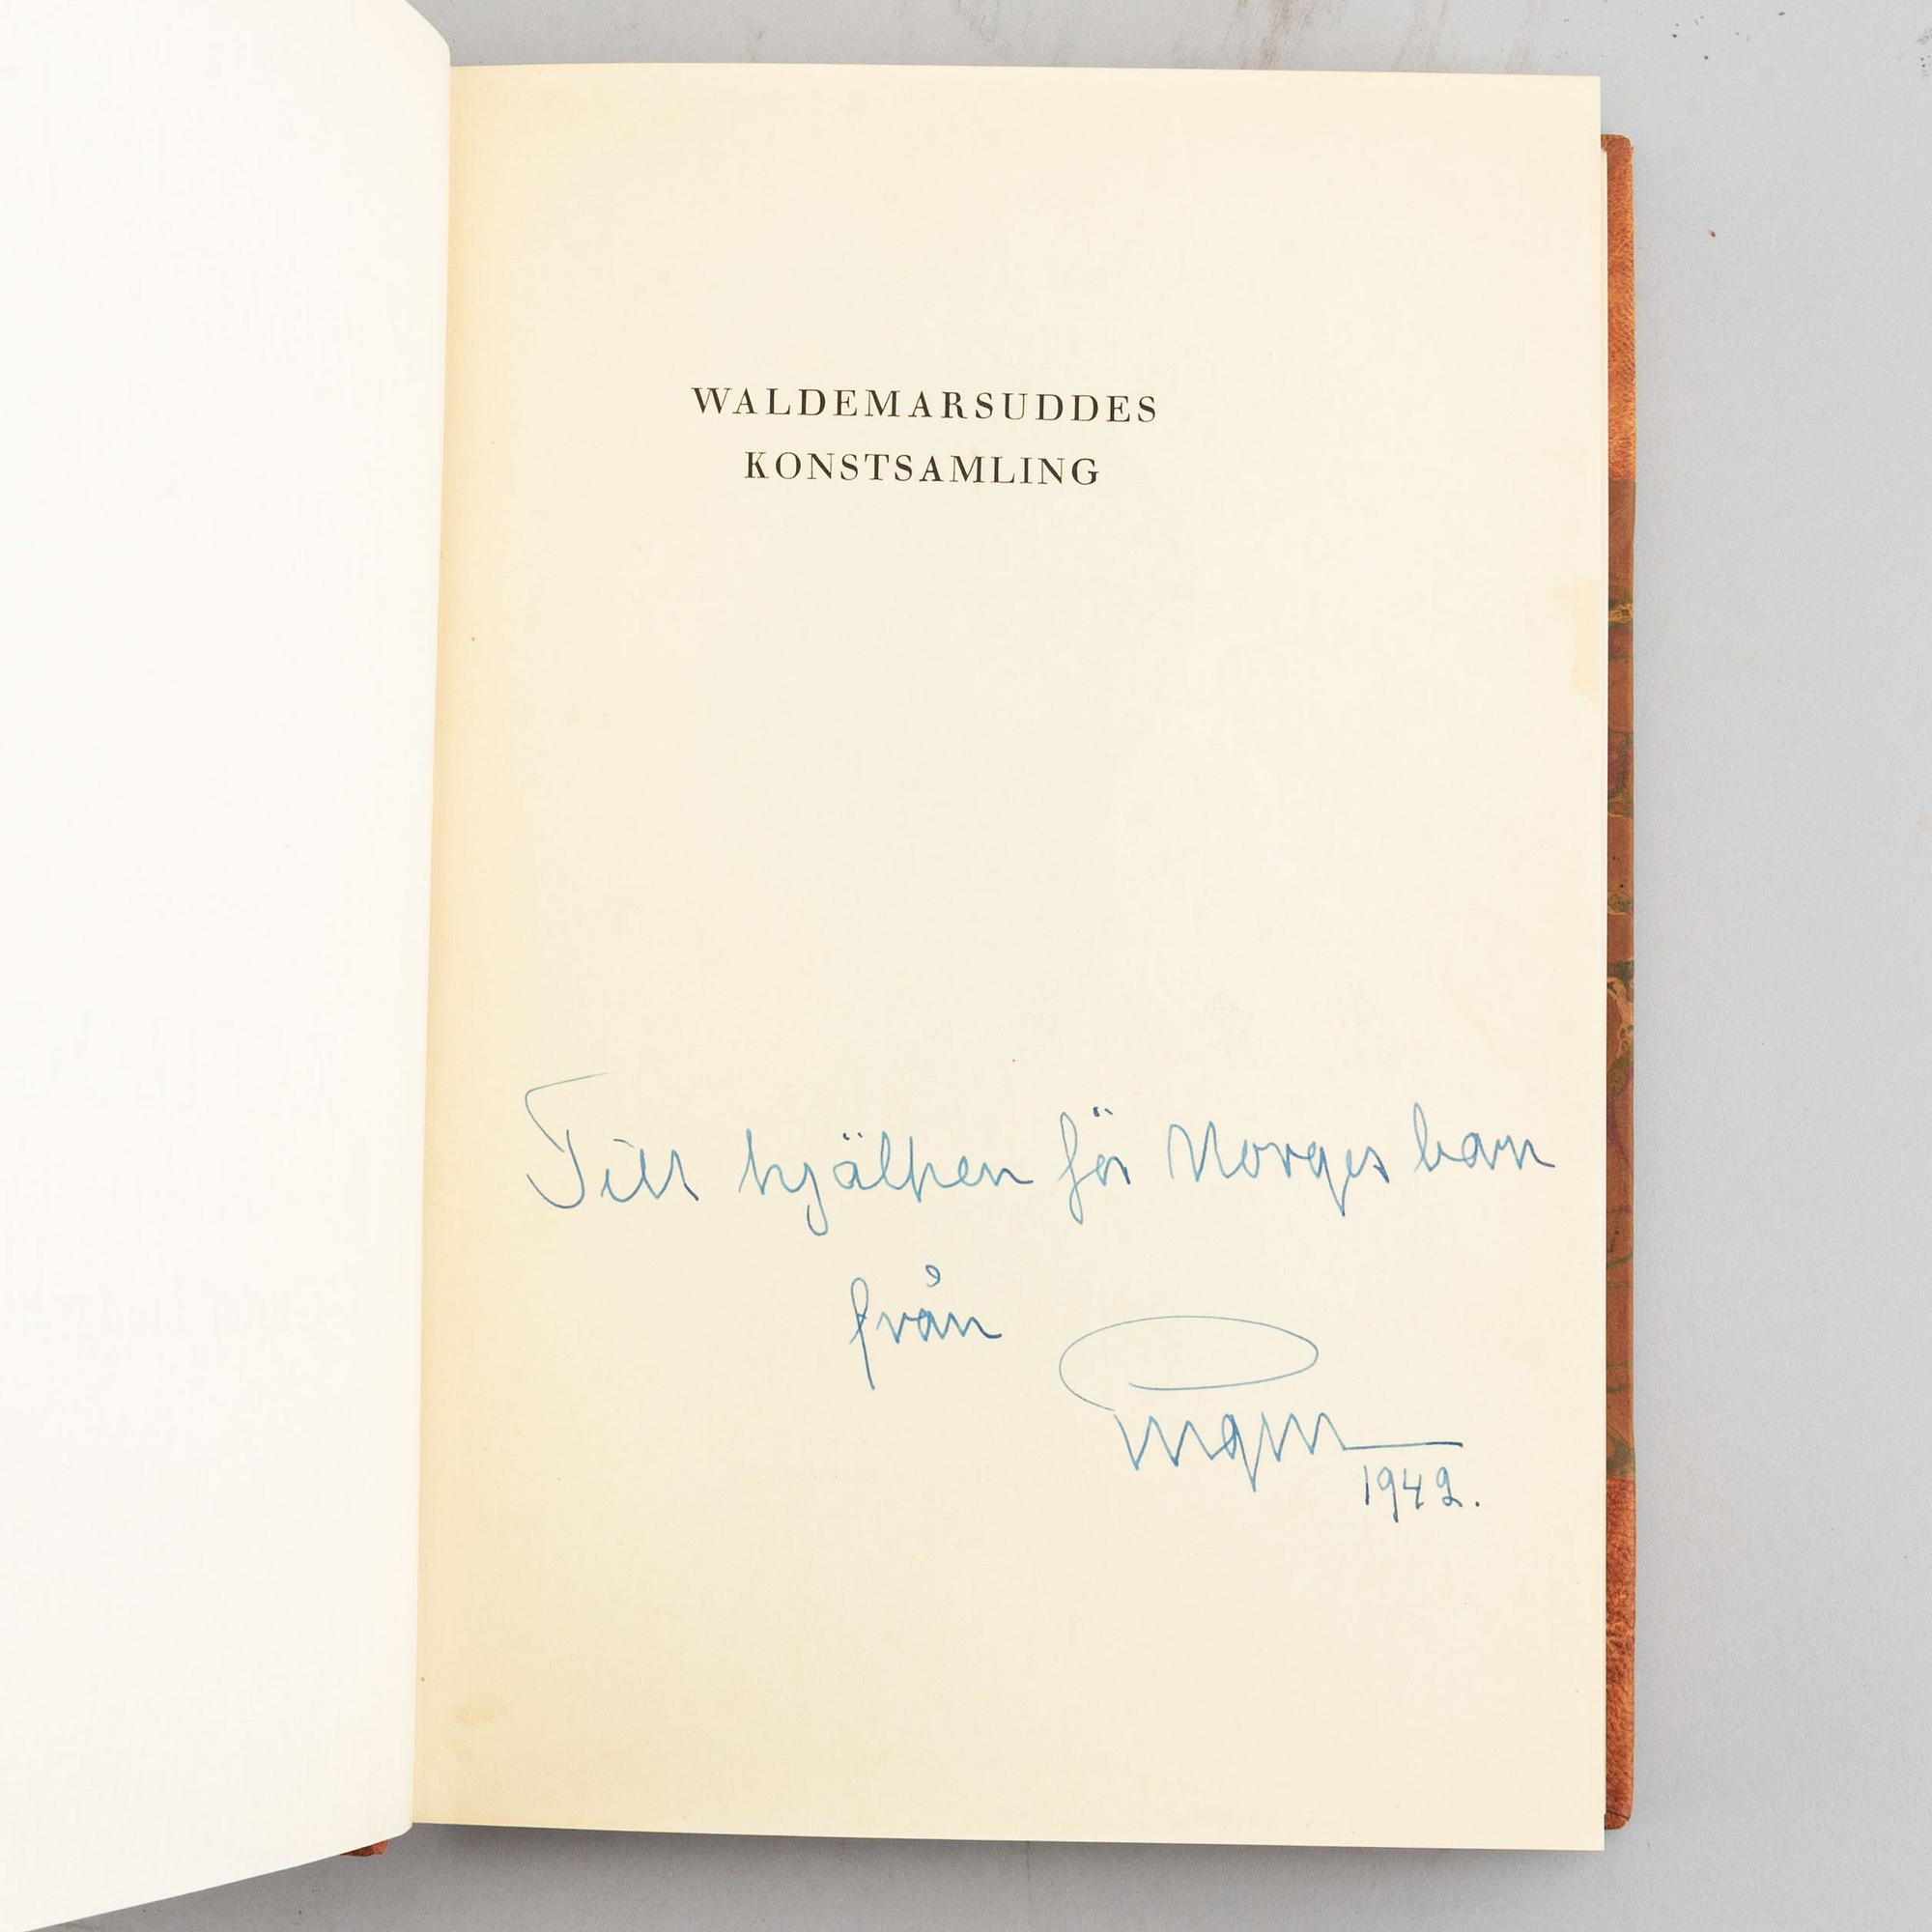 WALDEMARSUDDES
KONSTSAMLING
Till hjälpen för Norges barn
från
Eugen
1942.